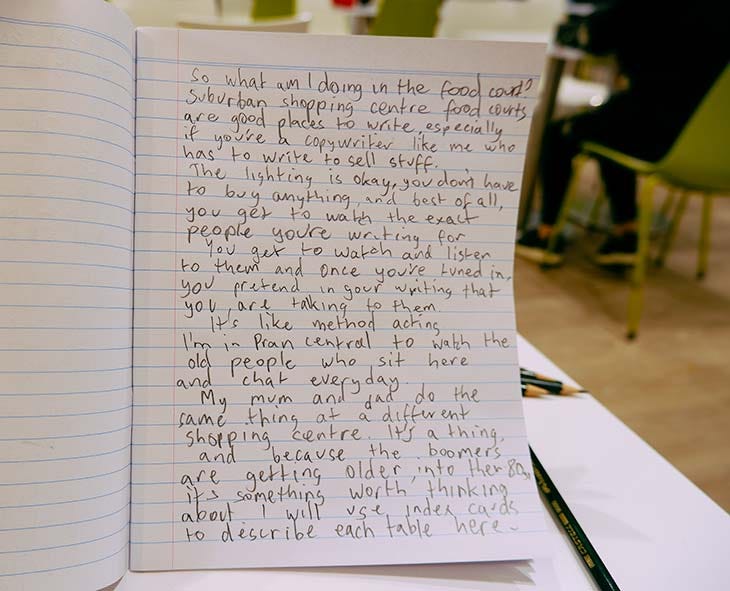 So what am I doing in the food court?
Suburban shopping centre food courts
are good places to write, especially
if you're a copywriter like me who
has to write to sell stuff.
The lighting is okay, you don't have
to buy anything, and best of all,
you get to watch the exact
people you're writing for
You get to watch and listen
to them and once you're tuned in,
you pretend in your writing that
you are taking to them.
It's like method acting
I'm in Pran central to watch the
old people who sit here
and chat everyday.
My mum and dad do the
same thing at a different
shopping centre. It's a thing,
and because the boomers
are getting older, into their 80s,
it's something worth thinking
about I will use index cards
to describe each table here.
CASTELL